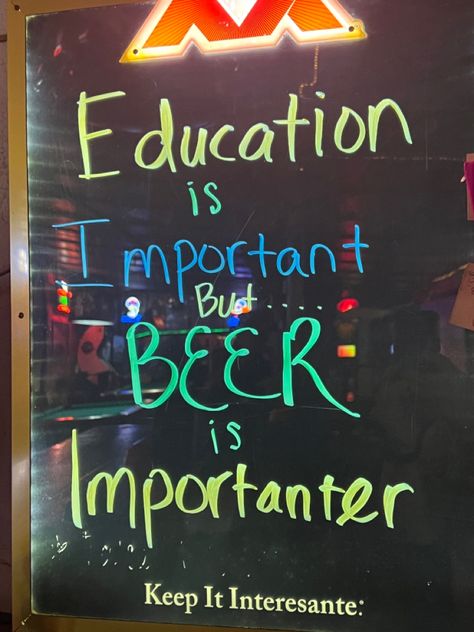 Education
is
Important
But.....
BEER
is
Importanter
Keep It Interesante: